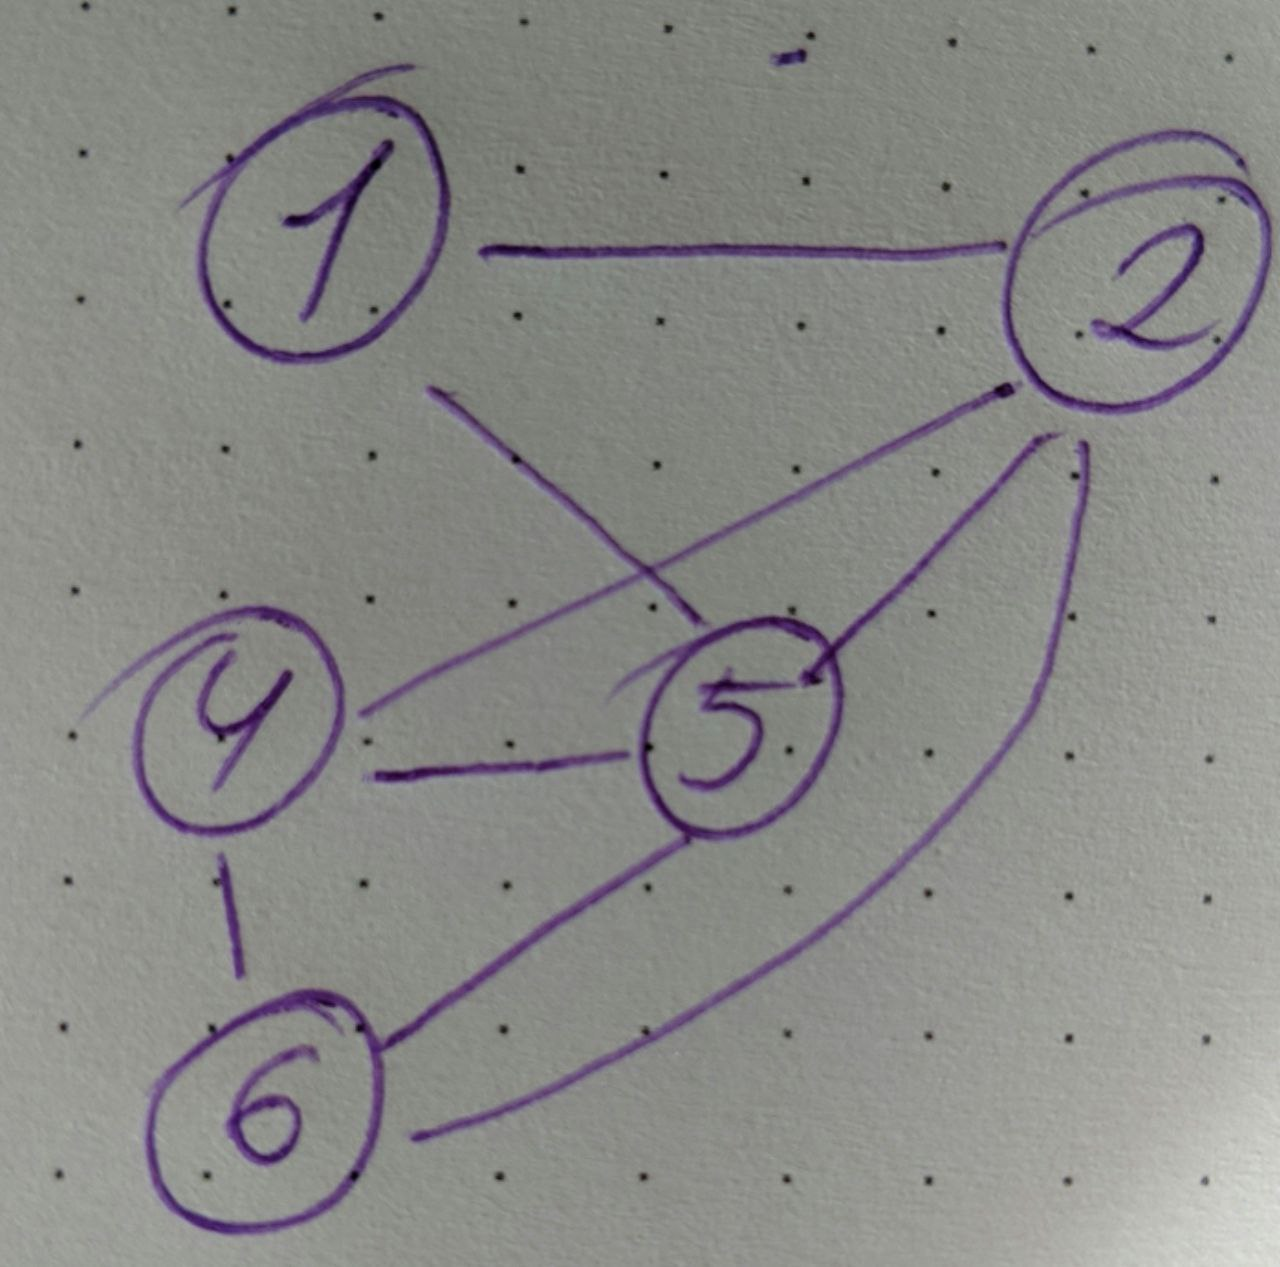 1
2
4
5
6